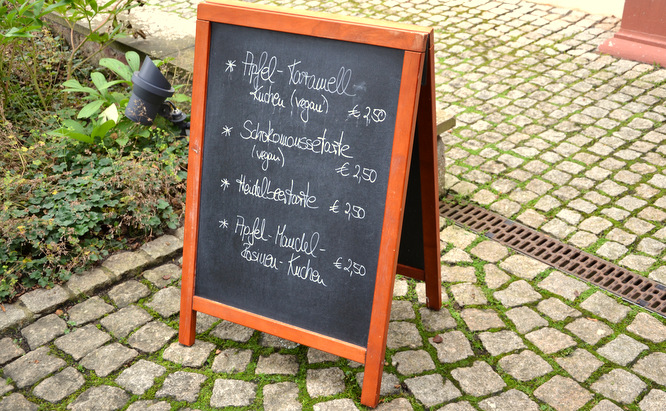 * Apfel-Karamell
Kuchen (vegan) € 2,50
* Schokomoussetarte
(vegan) € 2,50
* Heidelbeertarte € 2,50
* Apfel-Mandel-
Rosinen-Kuchen € 2,50